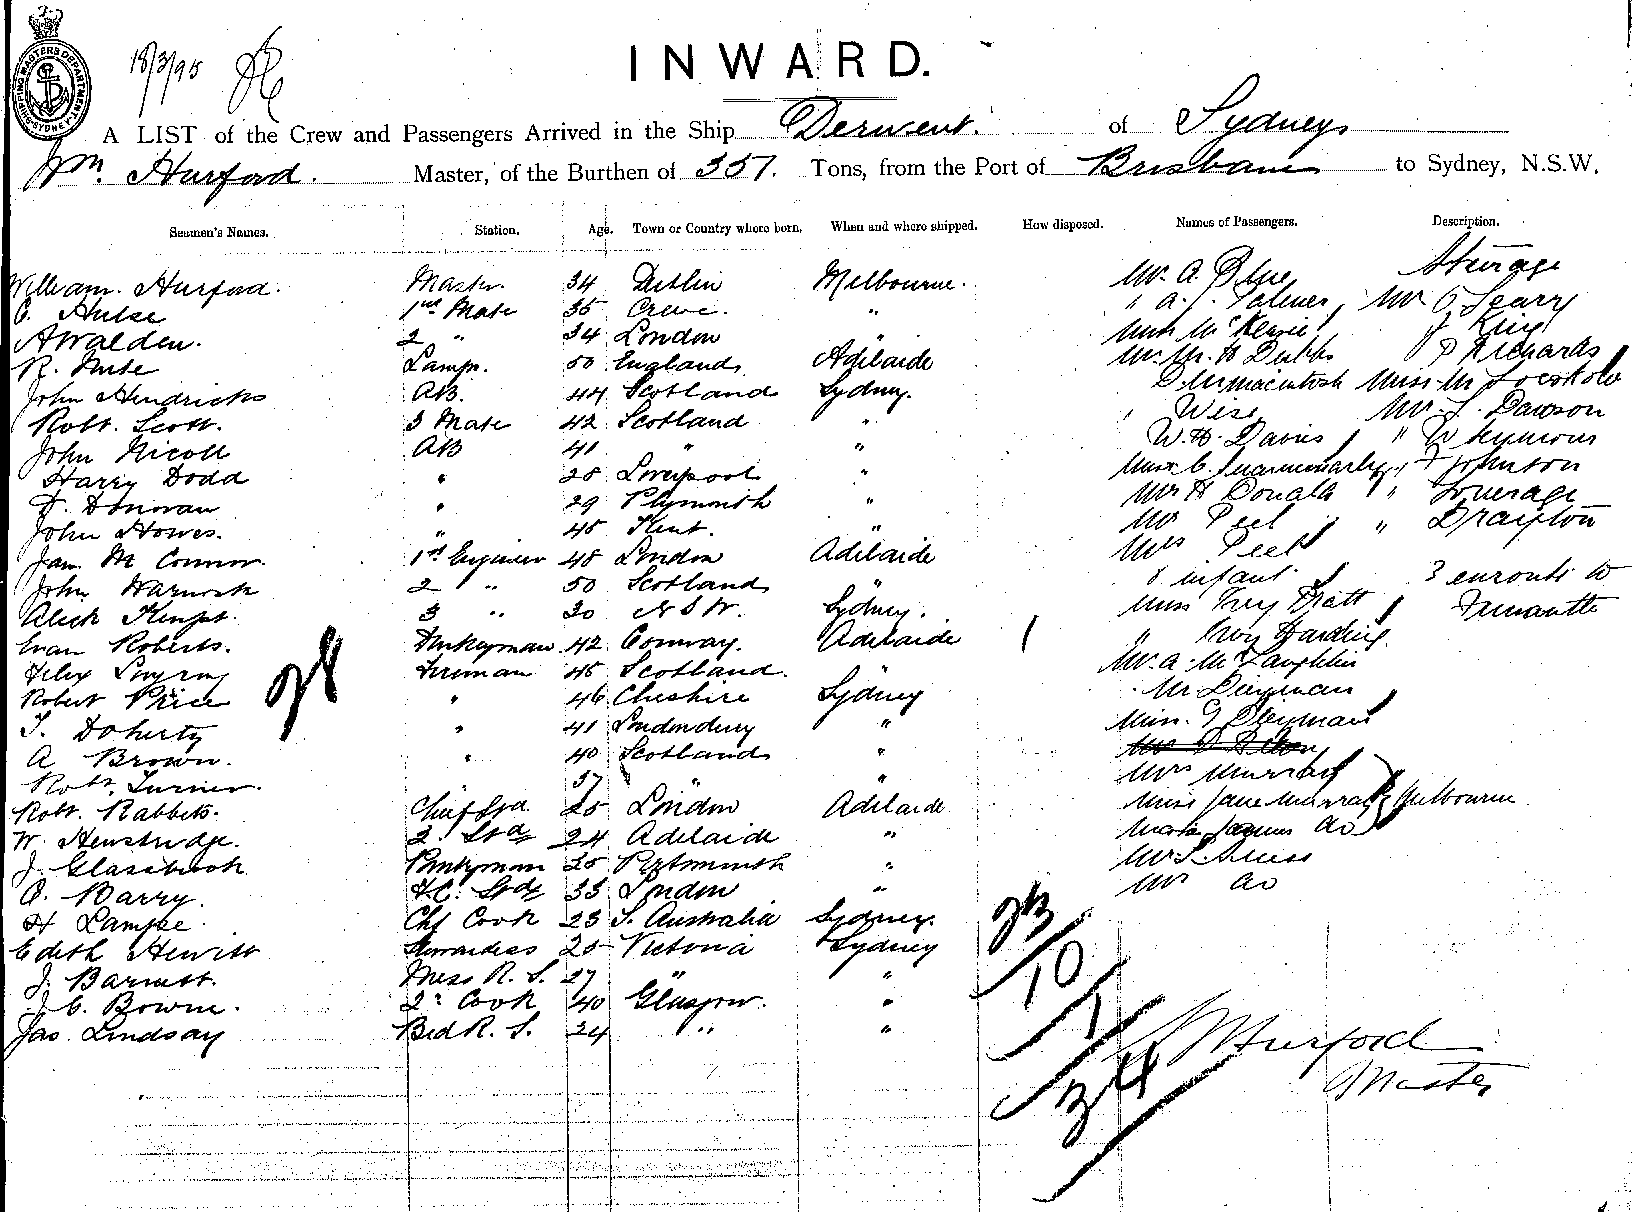 SHIPPING MASTERS DEPARTMENT SYDNEY
18/3/95
INWARD.
A LIST of the Crew and Passengers Arrived in the Ship Derwent. of Sydney
Wm. Hurford. Master, of the Burthen of 357. Tons, from the Port of Brisbane to Sydney, N.S.W.
Seamen's Names. Station. Age. Town or Country where born. When and where shipped. How disposed. Names of Passengers. Description.
William. Hurford. Master. 34 Dublin Melbourne. Mr. A. Blue Sturage
C. Hulse 1st Mate 35 Crewe. " " A. J. Palmer, Mr O Leary
A Walden. 2 " 34 London " Miss McKenzie J King
R. Muse Lamp. 50 England Adelaide Mr. M. H Dubbs P Richards
John Hendricks AB. 44 Scotland Sydney. Miss M
Robt. Scott. 3 Mate 42 Scotland " Wise Mr. L. Dawson
John Nicoll AB 41 " " W. H. Davis " W Seymour
Harry Dodd " 28 Liverpool " Johnson
D. Donovan " 29 Plymouth " Mr H Donald "
John Howes. " 45 Kent. " Mr Peel " Drayton
Jam. M Connor. 1st Engineer 48 London Adelaide Mrs Peel
John Warnock 2 " 50 Scotland " & infant 3 enroute to
Alick Kempt. 3 " 30 N S W. Sydney. Miss Pratt Fremantle
Evan Roberts. Dnkeyman 42 Conway. Adelaide " Harding
Fireman 45 Scotland. " Mr. A. McLaughlin
Robert Price " 46 Cheshire Sydney Mr Dieyman
T. Doherty " 41 Londonderry " Miss. G Dieyman
A Brown. " 40 Scotland "
Robt. Turner. 37 " Mrs Murray
Robt. Rabbets. Chief Std. 25 London Adelaide Miss Jane Murray Melbourne
W. Henstridge. 2 Stds 24 Adelaide " do
J. Glassbrook Pantryman 35 Portsmouth "
O. Barry. F.C. Stds 33 London " Mr do
H Lampe Chf Cook 23 S. Australia Sydney.
Edith Hewitt Stewardess 25 Victoria Sydney
J. Barnett. Mess R. S. 27 " "
J. C. Bowne. 2d Cook 40 Glasgow. "
Jas. Lindsay Bed R. S. 24 " "
28
10
1
W Hurford
Master